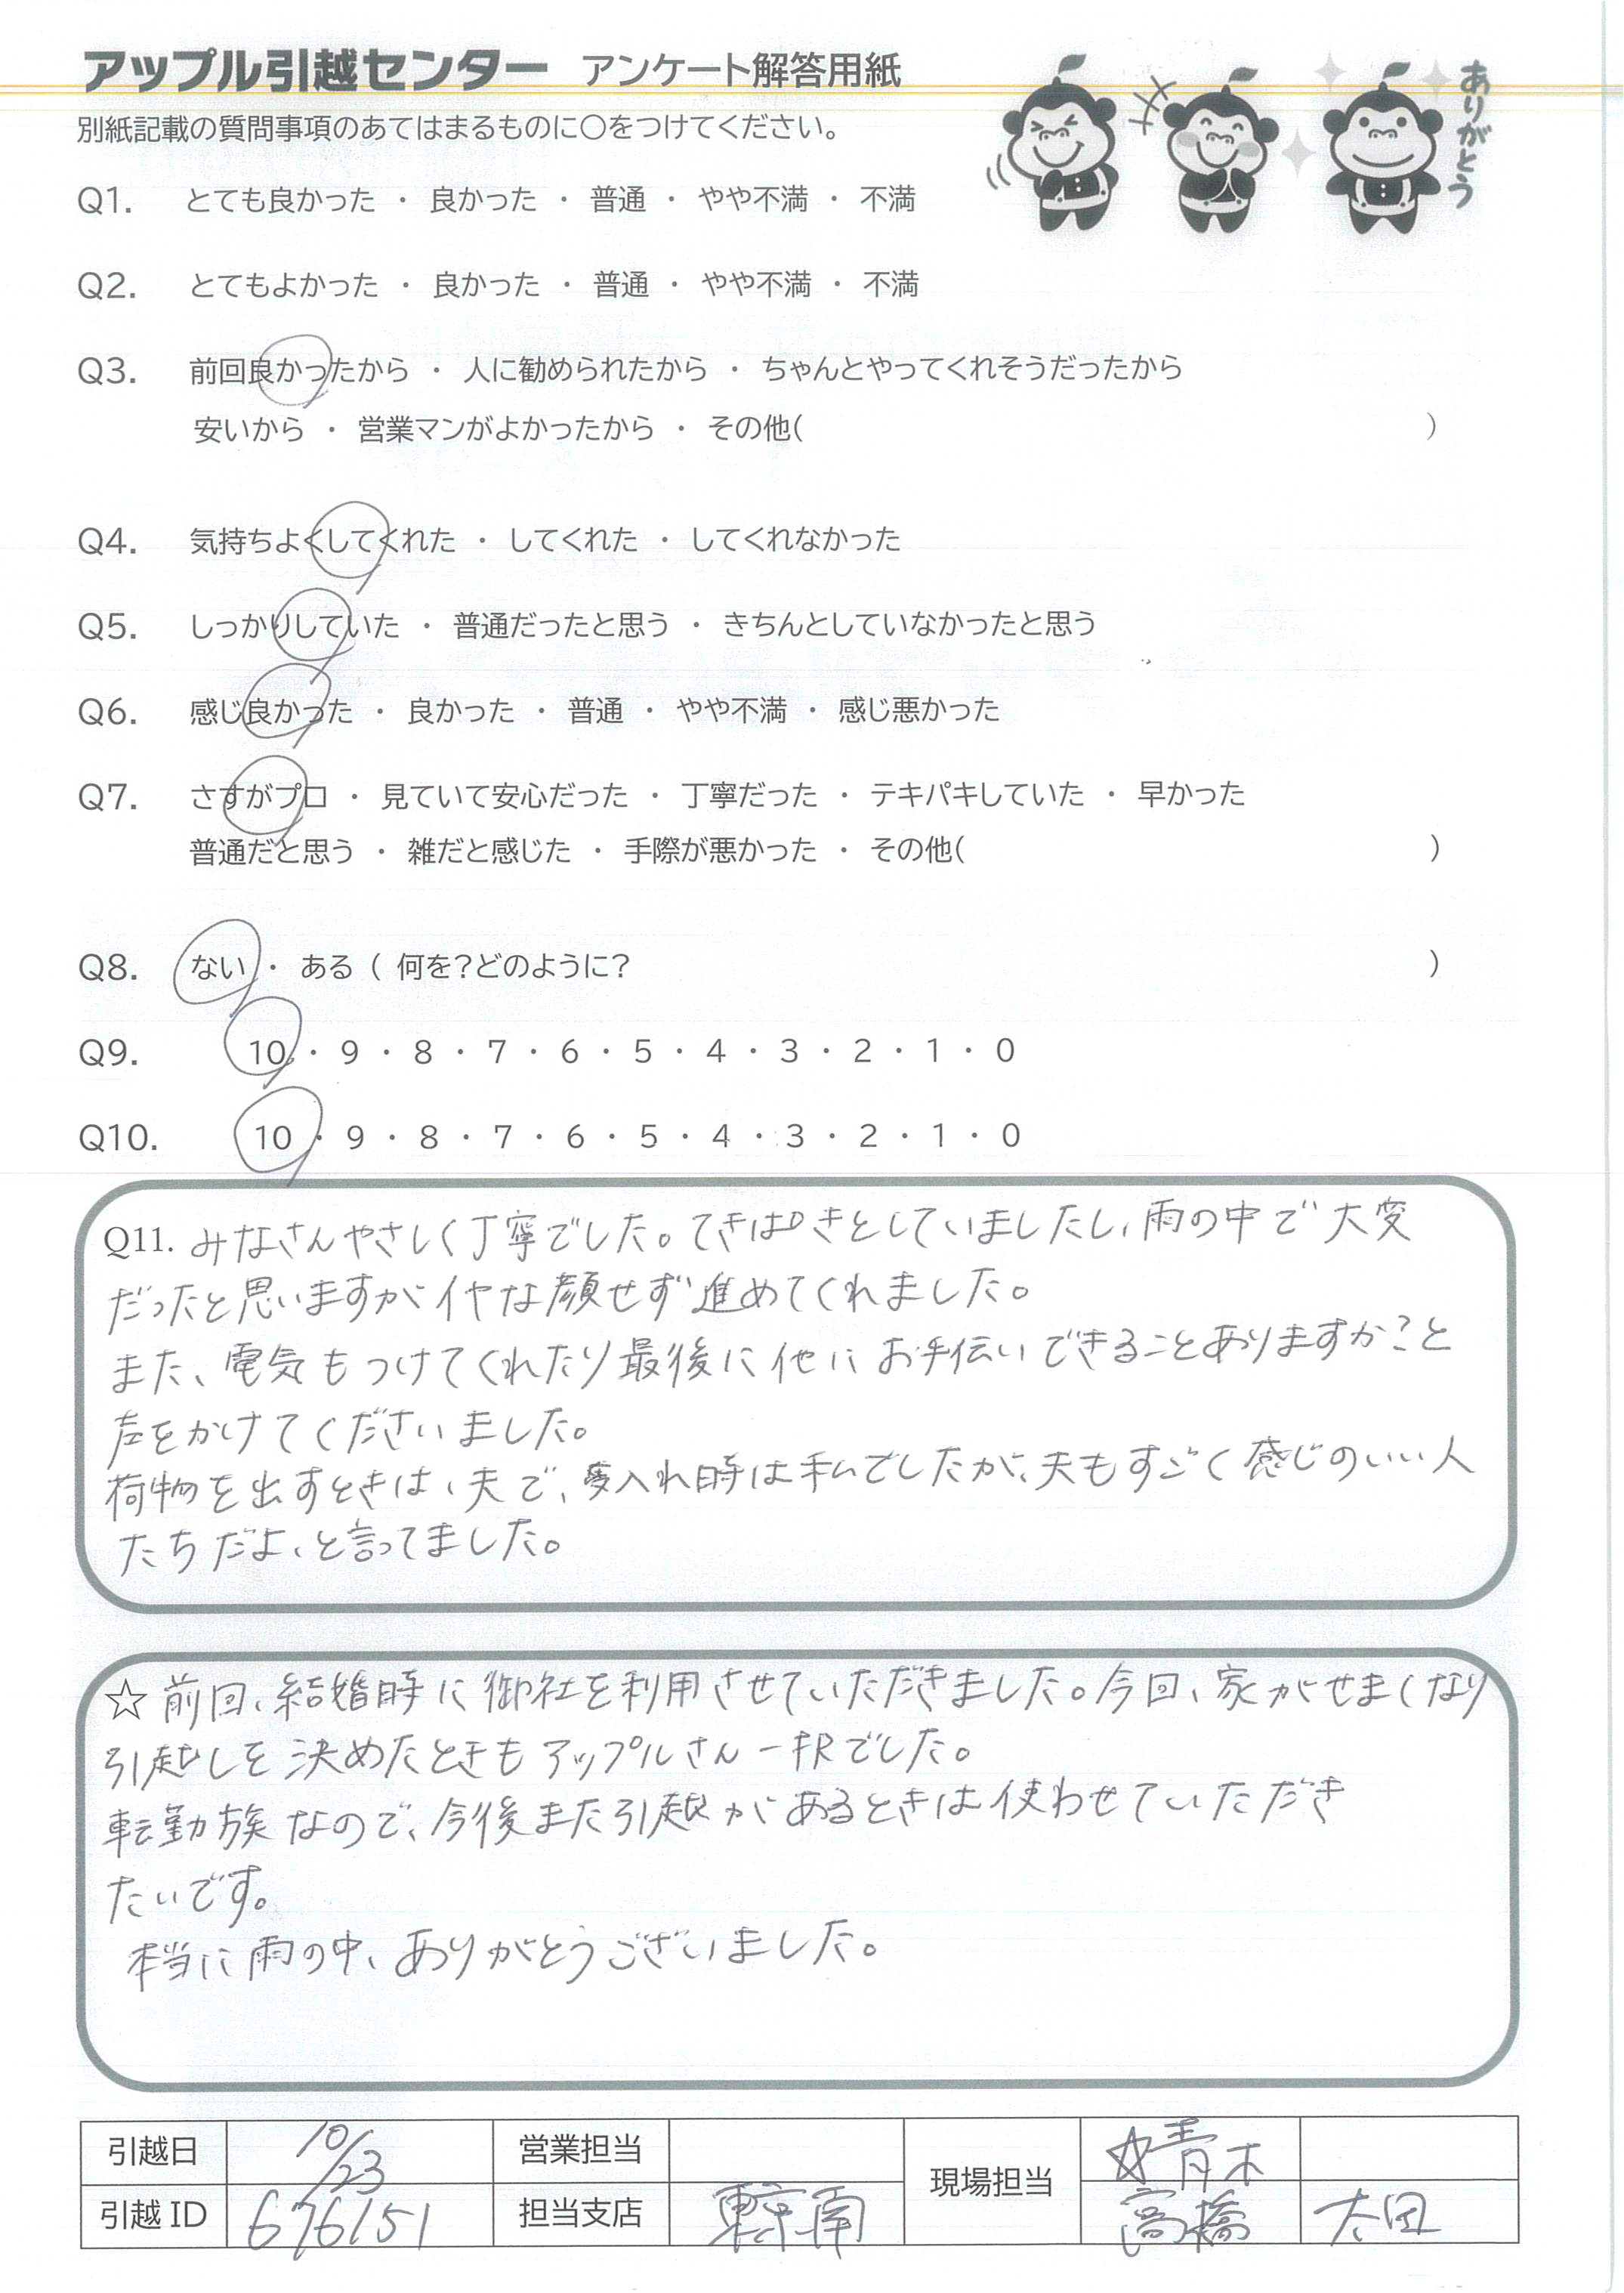 アップル引越センター アンケート解答用紙
ありがとう
別紙記載の質問事項のあてはまるものに〇をつけてください。
Q1. とても良かった ・ 良かった ・ 普通 ・ やや不満 ・ 不満
Q2. とてもよかった ・ 良かった ・ 普通 ・ やや不満 ・ 不満
Q3. 前回良かったから ・ 人に勧められたから ・ ちゃんとやってくれそうだったから
安いから ・ 営業マンがよかったから ・ その他( )
Q4. 気持ちよくしてくれた ・ してくれた ・ してくれなかった
Q5. しっかりしていた ・ 普通だったと思う ・ きちんとしていなかったと思う
Q6. 感じ良かった ・ 良かった ・ 普通 ・ やや不満 ・ 感じ悪かった
Q7. さすがプロ ・ 見ていて安心だった ・ 丁寧だった ・ テキパキしていた ・ 早かった
普通だと思う ・ 雑だと感じた ・ 手際が悪かった ・ その他( )
Q8. ない ・ ある ( 何を?どのように? )
Q9. 10 ・ 9 ・ 8 ・ 7 ・ 6 ・ 5 ・ 4 ・ 3 ・ 2 ・ 1 ・ 0
Q10. 10 ・ 9 ・ 8 ・ 7 ・ 6 ・ 5 ・ 4 ・ 3 ・ 2 ・ 1 ・ 0
Q11. みなさんやさしく丁寧でした。てきぱきとしていましたし、雨の中で大変
だったと思いますがイヤな顔せず進めてくれました。
また、電気もつけてくれたり最後に他にお手伝いできることありますか?と
声をかけてくださいました。
荷物を出すときは、夫で、入れ時は私でしたが、夫もすごく感じのいい人
たちだよ、と言ってました。
☆ 前回、結婚時に御社を利用させていただきました。今回、家がせまくなり
引越しを決めたときもアップルさん一択でした。
転勤族なので、今後また引越があるときは使わせていただき
たいです。
本当に雨の中、ありがとうございました。
引越日 10/23 営業担当 現場担当 ☆青木
引越 ID 676151 担当支店 東京南 高橋 太田